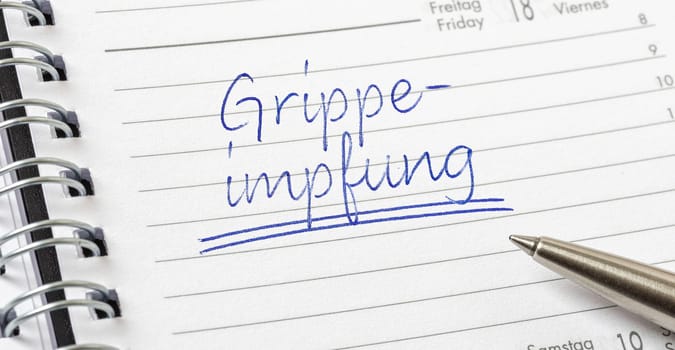 Freitag 18 Viernes
Friday
8
9
10
Grippe-
impfung
Samstag 19